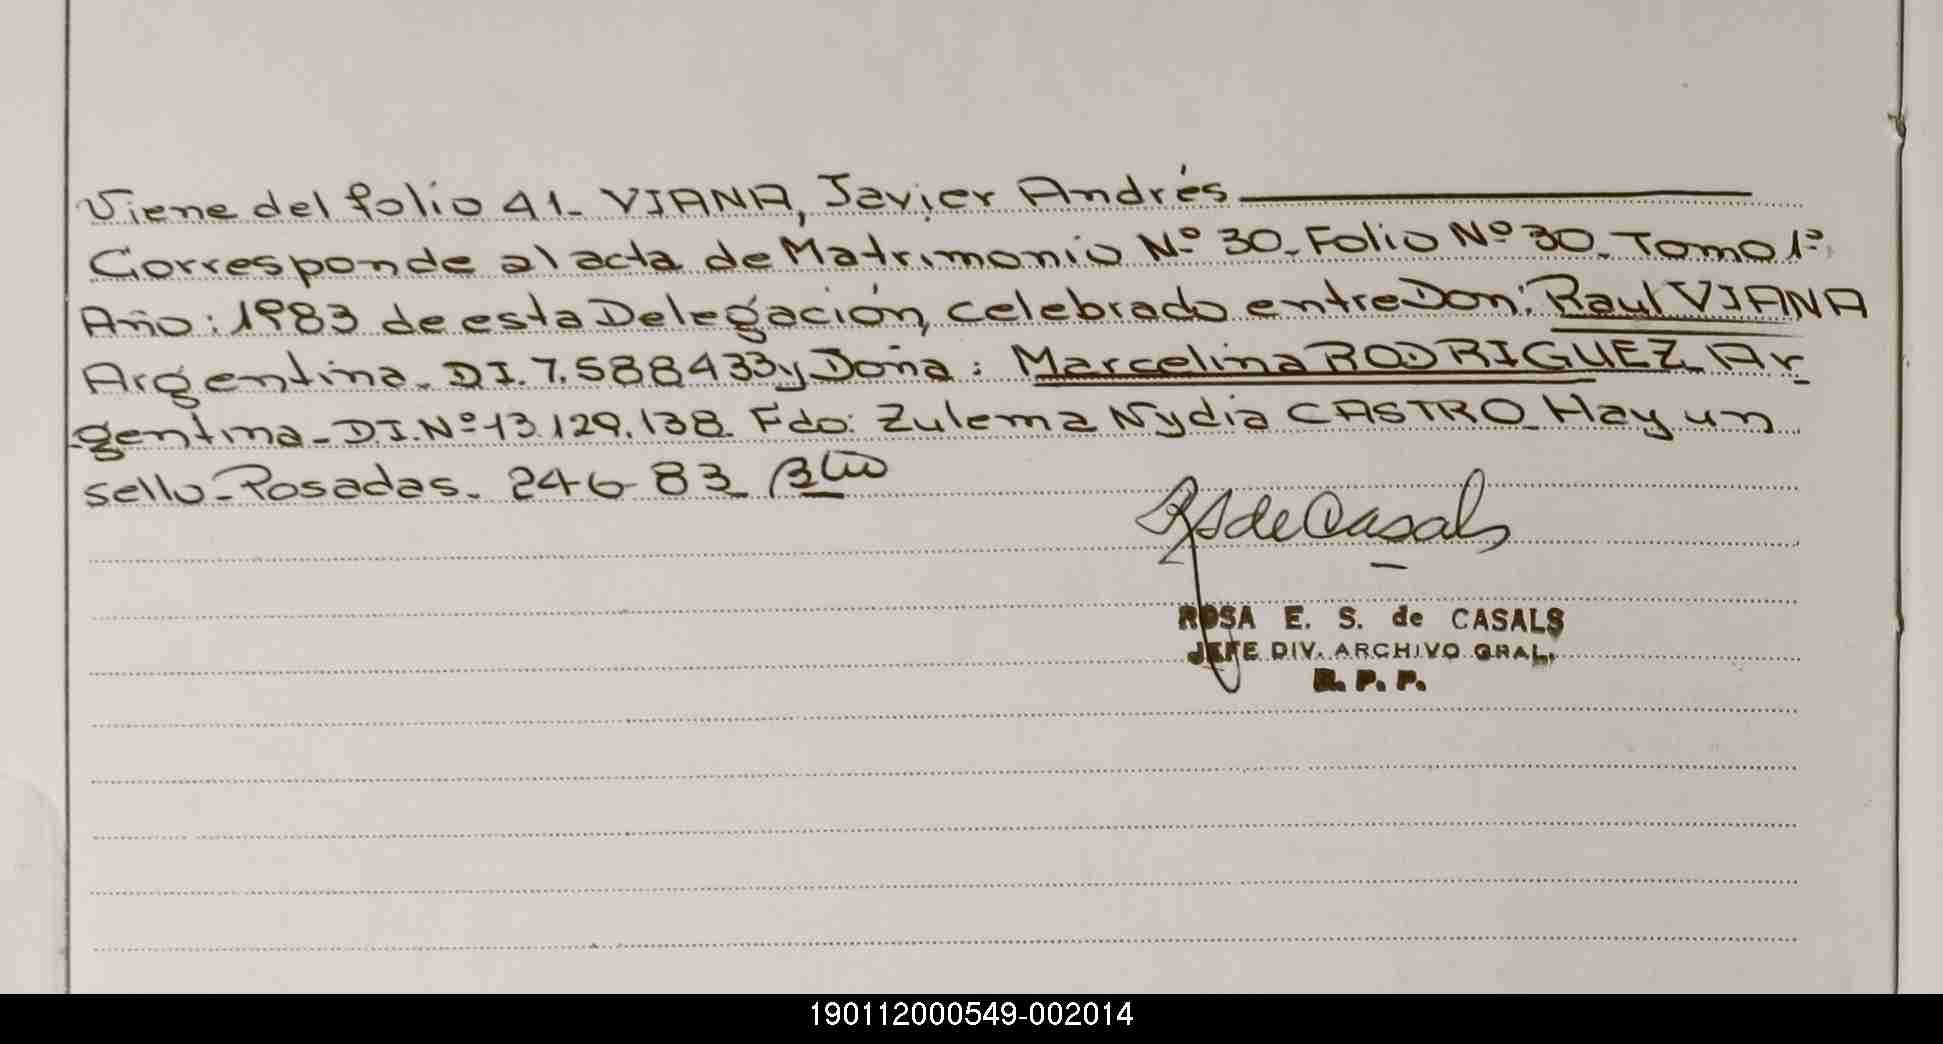 Viene del folio 41- VIANA, Javier Andrés
Corresponde al acta de Matrimonio Nº 30- Folio Nº 30- Tomo 1º
Año: 1983 de esta Delegación, celebrado entre Don: Raul VIANA
Argentina- DI. 7.588433 y Doña: Marcelina RODRIGUEZ- Ar
gentina- D.I. Nº 13.129.138- Fdo: Zulema Nydia CASTRO- Hay un
sello- Posadas- 24-6-83-
RS de Casals
ROSA E. S. de CASALS
JEFE DIV. ARCHIVO GRAL.
R. P. P.
190112000549-002014